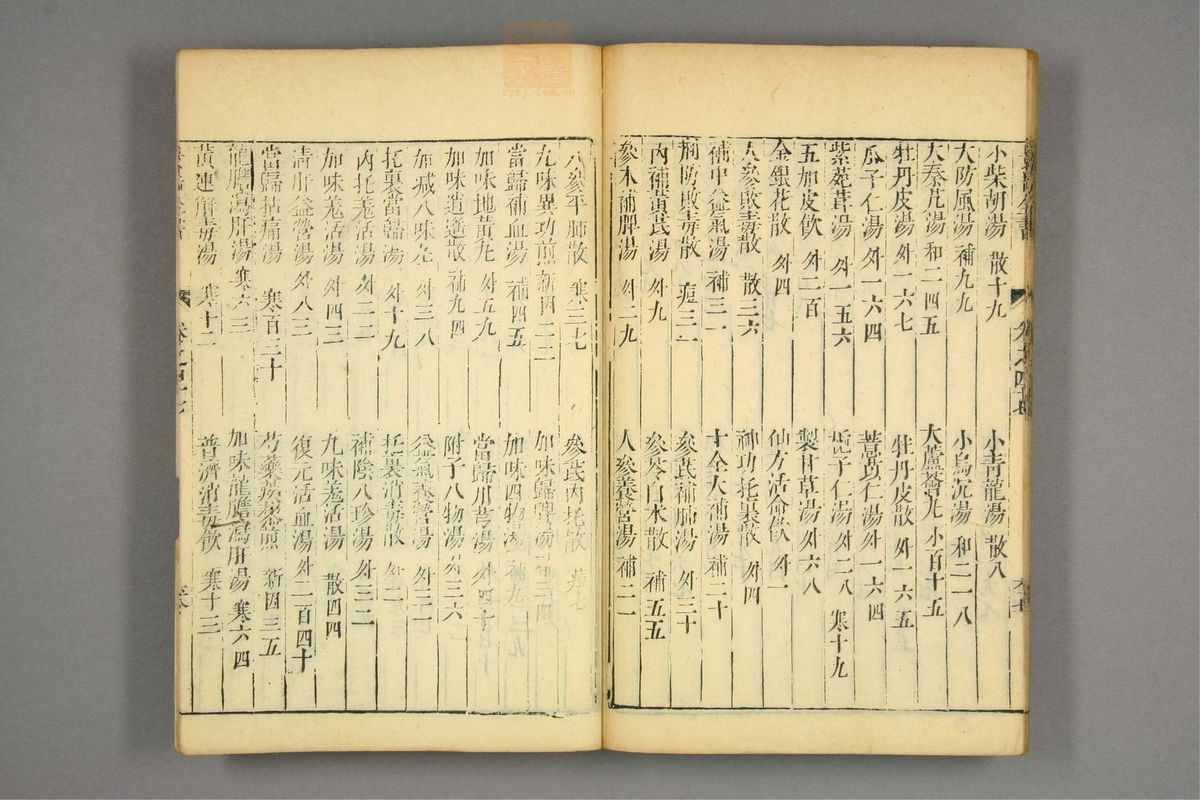 小柴胡湯 散十九 小青龍湯 散八
大防風湯 補九九 小烏沉湯 和二一八
大秦艽湯 和二四五 大蘆薈丸 小百十五
牡丹皮湯 外一六七 牡丹皮散 外一六五
瓜子仁湯 外一六四 薏苡仁湯 外一六四
紫菀茸湯 外一五六 梔子仁湯 外二八 寒十九
五加皮飲 外二百 製甘草湯 外六八
金銀花散 外四 仙方活命飲 外一
人參敗毒散 散三六 神功托裏散 外四
補中益氣湯 補三一 十全大補湯 補二十
荊防敗毒散 痘三一 參芪補肺湯 外三十
內補黃芪湯 外九 參苓白朮散 補五五
參朮補脾湯 外二九 人參養營湯 補二一
人參平肺散 寒三七 參芪內托散 痘七
九味異功煎 新四二二 加味歸脾湯
當歸補血湯 補四五 加味四物湯 補九
加味地黃丸 外五九 當歸川芎湯 外四十
加味逍遙散 補九四 附子八物湯 外三六
加減八味丸 外三八 益氣養營湯 外三二
托裏當歸湯 外十九 托裏消毒散 外二
內托羌活湯 外二二二 補陰八珍湯 外三二
加味羌活湯 外四三 九味羌活湯 散四四
清肝益營湯 外八三 復元活血湯 外二百四十
當歸拈痛湯 寒百三十 芍藥蒺藜煎 新四三五
龍膽瀉肝湯 寒六三 加味龍膽瀉肝湯 寒六四
黃連解毒湯 寒十二 普濟消毒飲 寒十三
卷之四十七